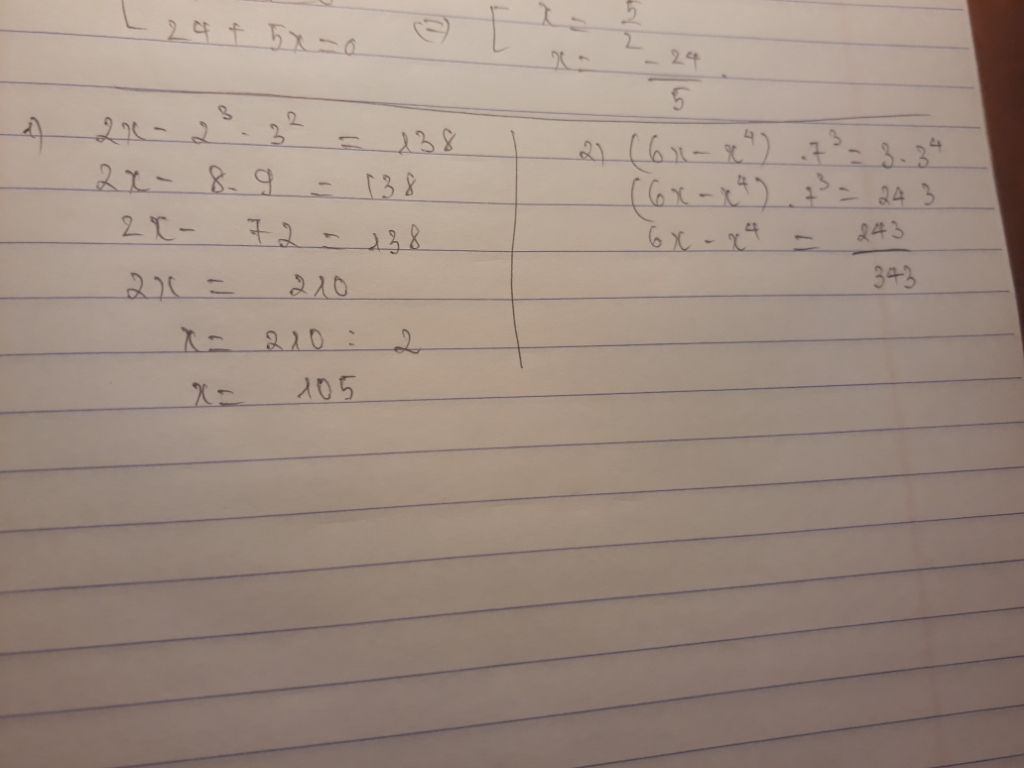 24 + 5x = 0 ⇔ [ x = 5/2
x = -24/5.
1) 2x - 2³ · 3² = 138
2x - 8.9 = 138
2x - 72 = 138
2x = 210
x = 210 : 2
x = 105
2) (6x - x⁴) .7³ = 3.3⁴
(6x - x⁴) .7³ = 243
6x - x⁴ = 243/343